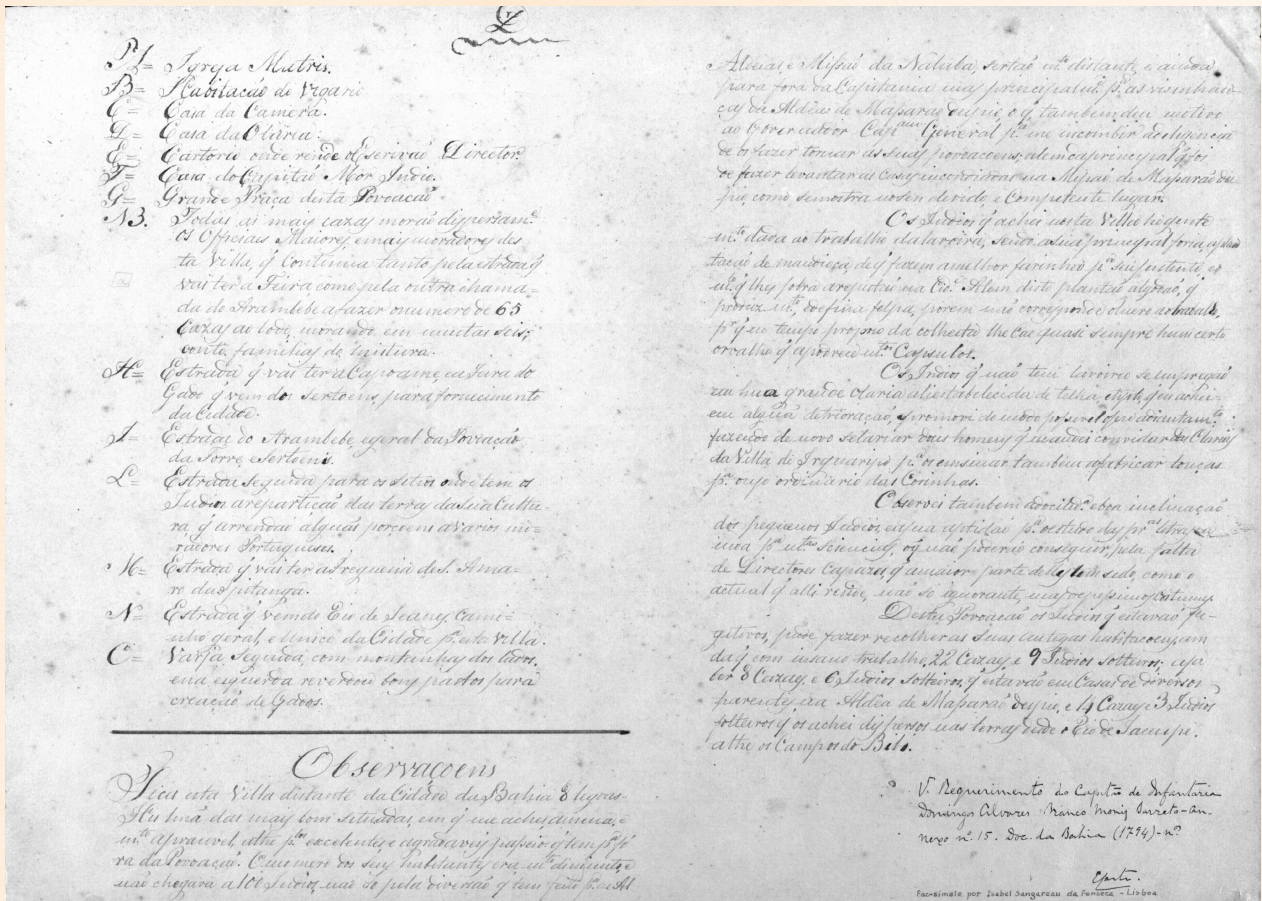 A= Igreja Matris.
B= Habitação do Vigario
C= Casa da Camera.
D= Casa da Olaria.
E= Cartorio onde rende o Escrivaõ Director.
F= Casa do Capitaõ Mor Indio.
G= Grande Praça desta Povoaçaõ
N3. Todas as mays cazas moraõ dispersam.e
os Officiais Maiores, e mays moradores des=
ta Villa, q̃ Continua tanto pela estrada q̃
vai ter a Feira como pela outra chama=
da do Arambebe a fazer o numero de 65
Cazas ao todo, morando em muitas seis,
e oito familias de mistura.
H= Estrada q̃ vai ter a Capoame, ou Feira do
Gado q̃ vem dos Sertoens, para fornecimento
da Cidade.
I= Estrada do Arambebe, e geral da Povoaçaõ
da Torre, e Sertoens.
L= Estrada seguida para os sitios onde tem os
Indios a repartiçaõ das terras da sua Cultu=
ra q̃ arrendaõ algũas porçoens a varios mo=
radores Portugueses.
M= Estrada q̃ vai ter a Freguezia de S. Ama=
ro da Pitanga.
N= Estrada q̃ vem do Rio de Joanes, cami=
nho geral, e unico da Cidade p.a esta Villa.
O= Varja seguida, com montanhas dos lados,
e na esquerda bons pastos para
creaçaõ de Gados.
Observaçoens
Fica esta Villa distante da Cidade da Bahia 8 legoas
He huã das mays bem situadas, em q̃ me achei,
m.to aprasivel, athe p.los excelentes e agradaveis passeios q̃ tem p.a fó=
ra da Povoaçaõ. O numero dos seus habitantes era m.to diminuto, e
naõ chegara a 100 Indios naõ só pela diversaõ q̃ tem feito p.a as Al
Aldeias, e Missaõ da Natuba, sertaõ m.to distante, e ainda
para fora da Capitania mas principalm.e p.a as visinhan=
ças da Aldeia de Massaraõ dupio, o q̃ tambem deu motivo
ao Governador Cap.am General p.a me incombir a deligencia
de os fazer tornar as suas povoaçoens, alem da principal q̃ foi
de fazer levantar as Casas incendiadas na Missaõ de Massaraõ du=
pio, como se mostra no seu devido, e Competente lugar.
Os Indios q̃ achei nesta Villa he gente
m.to dada ao trabalho da lavoira, sendo a sua principal
taçaõ de mandioca, de q̃ fazem a melhor farinha p.a seu sustento, e o
m.to q̃ lhes sobra Alem disto plantaõ algodaõ, q̃
produz m.to de fina felpa, porem naõ corresponde o lucro ao trabalho,
p.r q̃ em tempo proprio da colheita lhe cae quasi sempre hum certo
orvalho q̃ apodrece m.tos Capsulos.
Os Indios q̃ naõ tem lavoiro se empregaõ
em huã grande Olaria ali estabelecida de telha, e tijolo, q̃ eu achei
em algũa deterioraçaõ, e promovi do modo possivel
fazendo de novo selariar dous homens q̃ mandei convidar das Olarias
da Villa de p.a os ensinar tambem a fabricar louças
p.a o uso ordinario das Cosinhas.
Observei tambem a docilid.e e boa inclinaçaõ
dos pequenos Indios, e a sua aptidaõ p.a o estudo das pr.as letras, e a
inda p.a m.tas Sciencias, o q̃ naõ poderaõ conseguir, pela falta
de Directores Capazes, q̃ a maior parte delles tem sido, como o
actual q̃ ali reside, naõ só ignorante, mas de pessimos costumes.
Desta Povoaçaõ os Indios q̃ estavaõ fu=
gitivos, pude fazer recolher as suas antigas habitaçoens, ain
da q̃ com insano trabalho, 22 Cazaes, e 9 Indios solteiros; a sa
ber 8 Cazaes, e 6 Indios solteiros, q̃ estavaõ em Casas de diversos
parentes na Aldeia de Massaraõ dupio, e 14 Cazaes e 3 Indios
solteiros q̃ os achei dispersos nas terras desde o Rio de Jacuipe,
athe os Campos do
V. Requerimento do Capitão de Infantaria
Domingos Alvares Branco Moniz Barreto - An-
nexo nº 15. Doc. da Bahia (1794) - nº
Fac-simile por Isabel Sangareau da Fonseca - Lisboa